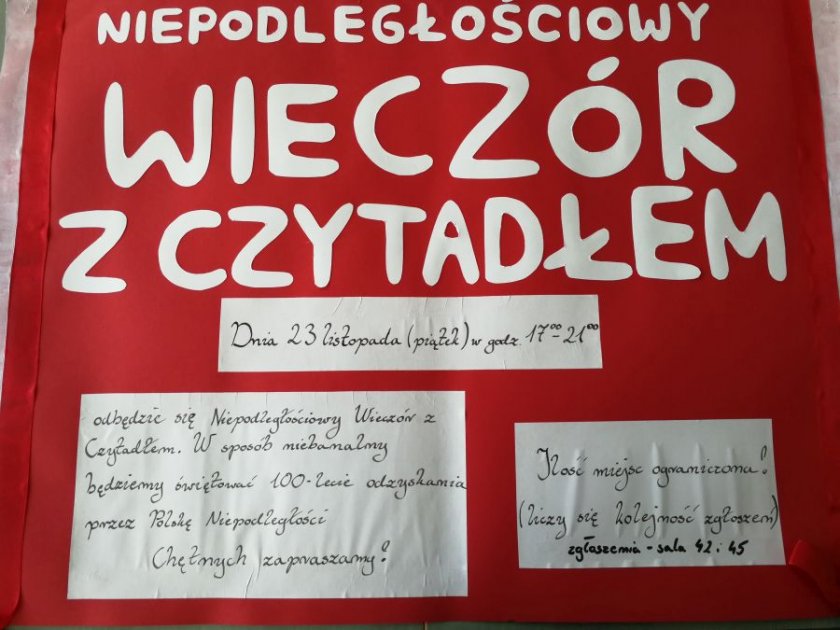 NIEPODLEGŁOŚCIOWY
WIECZÓR
Z CZYTADŁEM
Dnia 23 listopada (piątek) w godz. 17⁰⁰-21⁰⁰
odbędzie się Niepodległościowy Wieczór z
Czytadłem. W sposób niebanalny
będziemy świętować 100-lecie odzyskania
przez Polskę Niepodległości
Chętnych zapraszamy!
Ilość miejsc ograniczona!
(liczy się kolejność zgłoszeń)
zgłaszenia - sala 42 i 45